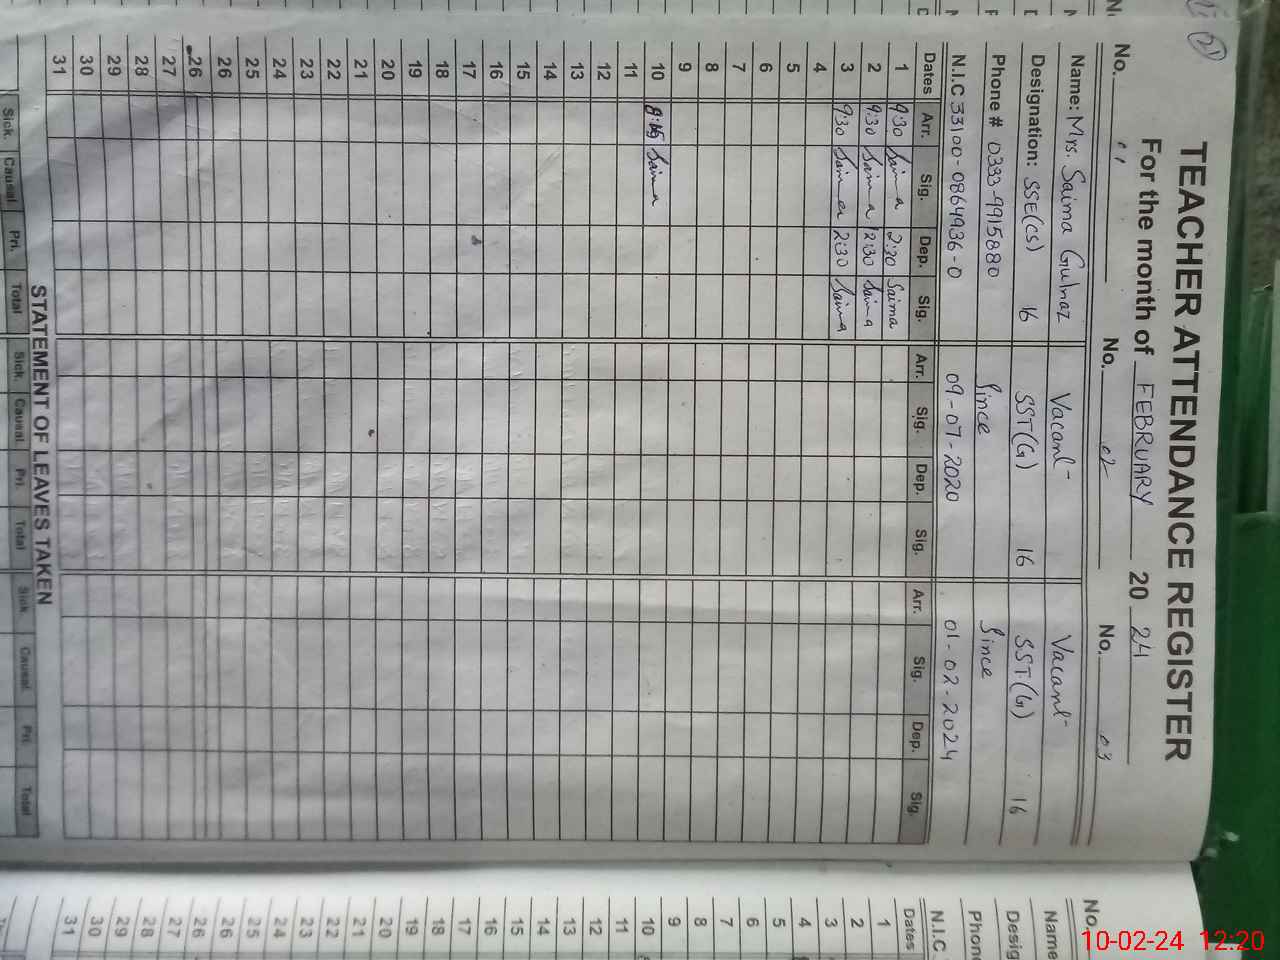 21
TEACHER ATTENDANCE REGISTER
For the month of FEBRUARY 2024
No. 01 No. 02 No. 03
Name: Mrs. Saima Gulnaz Vacant Vacant
Designation: SSE(CS) 16 SST(G) 16 SST(G) 16
Phone # 0333-9915880 Since Since
N.I.C 33100-0864936-0 09-07-2020 01-02-2024
Dates Arr. Sig. Dep. Sig. Arr. Sig. Dep. Sig. Arr. Sig. Dep. Sig.
1 9:30 Saima 2:30 Saima
2 9:30 Saima 12:30 Saima
3 9:30 Saima 2:30 Saima
4
5
6
7
8
9
10 8:45 Saima
11
12
13
14
15
16
17
18
19
20
21
22
23
24
25
26
26
27
28
29
30
31
STATEMENT OF LEAVES TAKEN
Sick. Causal Pri. Total Sick. Causal Pri. Total Sick. Causal Pri. Total
No.
Name
Desig
Phone
N.I.C
Dates
1
2
3
4
5
6
7
8
9
10
11
12
13
14
15
16
17
18
19
20
21
22
23
24
25
26
26
27
28
29
30
31
10-02-24 12:20